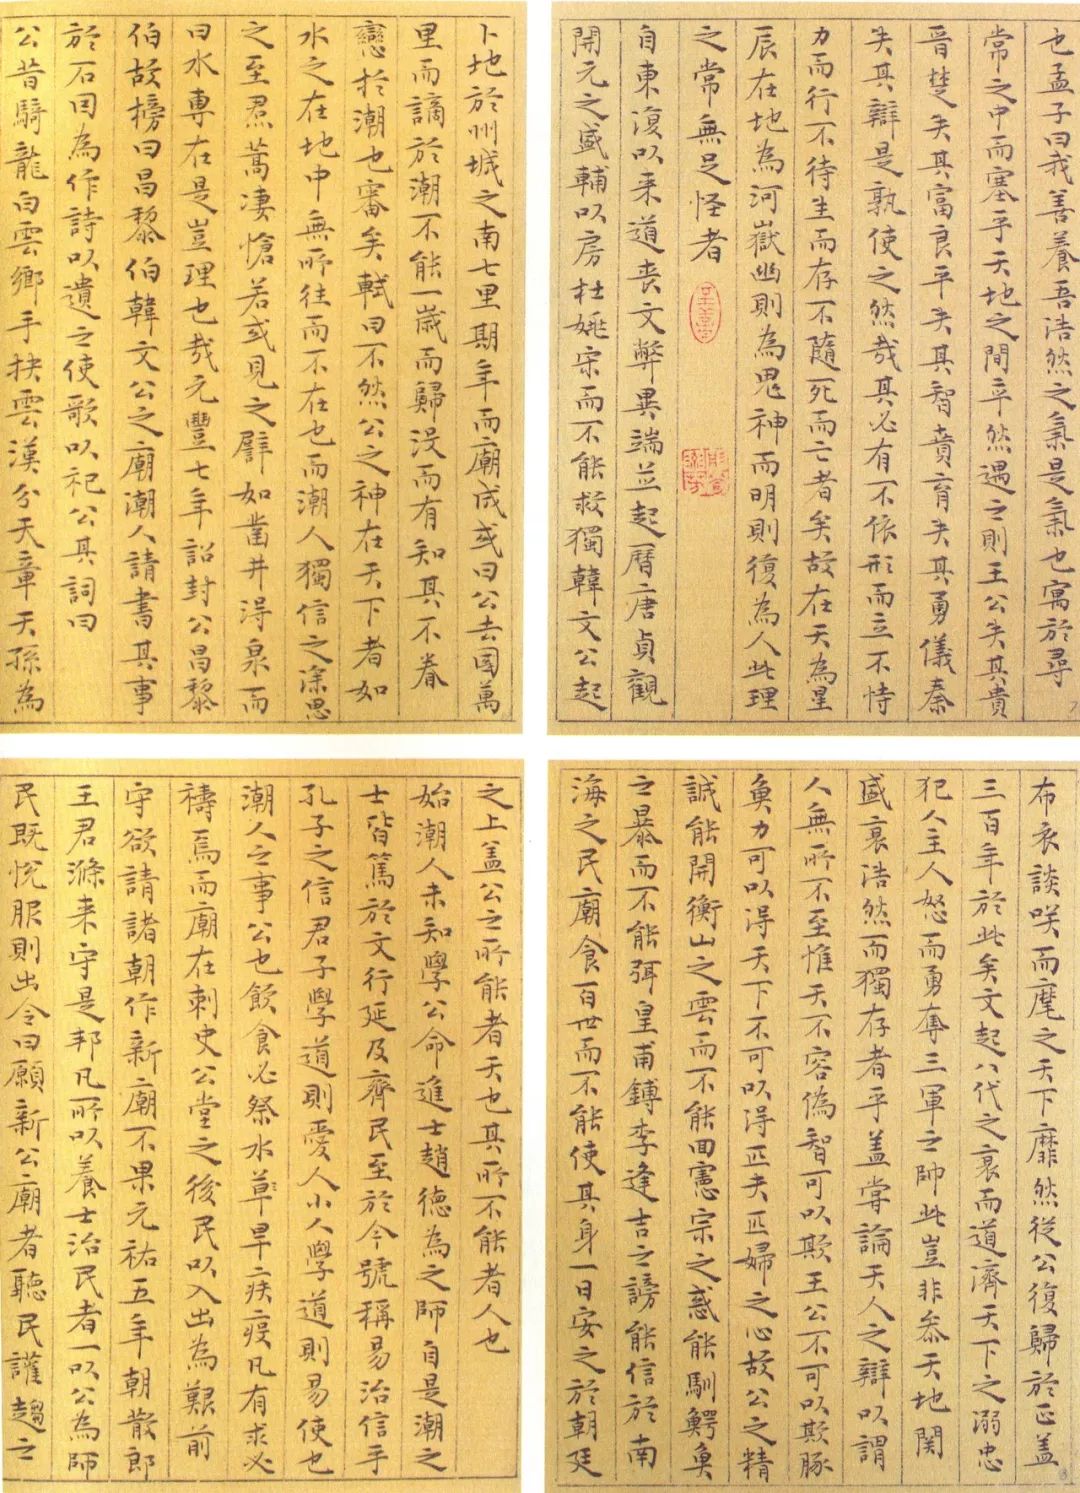 也孟子曰我善養吾浩然之氣是氣也寓於尋
常之中而塞乎天地之間卒然遇之則王公失其貴
晉楚失其富良平失其智賁育失其勇儀秦
失其辯是孰使之然哉其必有不依形而立不恃
力而行不待生而存不隨死而亡者矣故在天為星
辰在地為河嶽幽則為鬼神而明則復為人此理
之常無足怪者
自東漢以来道喪文弊異端並起曆唐貞觀
開元之盛輔以房杜姚宋而不能救獨韓文公起
布衣談咲而麾之天下靡然從公復歸於正盖
三百年於此矣文起八代之衰而道濟天下之溺忠
犯人主人怒而勇奪三軍之帥此豈非叅天地関
盛衰浩然而獨存者乎盖嘗論天人之辯以謂
人無所不至惟天不容偽智可以欺王公不可以欺豚
魚力可以得天下不可以得匹夫匹婦之心故公之精
誠能開衡山之雲而不能回憲宗之惑能馴鰐魚
之暴而不能弭皇甫鎛李逢吉之謗能信於南
海之民廟食百世而不能使其身一日安之於朝廷
之上盖公之所能者天也其所不能者人也
始潮人未知學公命進士趙德為之師自是潮之
士皆篤於文行延及齊民至於今號稱易治信乎
孔子之信君子學道則愛人小人學道則易使也
潮人之事公也飲食必祭水草旱疾疫凡有求必
禱焉而廟在刺史公堂之後民以入出為艱前
守欲請諸朝作新廟不果元祐五年朝散郎
王君滌来守是邦凡所以養士治民者一以公為師
民既悅服則出令曰願新公廟者聽民讙趨之
卜地於州城之南七里期年而廟成或曰公去國萬
里而謫於潮不能一歲而歸没而有知其不眷
戀於潮也審矣軾曰不然公之神在天下者如
水之在地中無所往而不在也而潮人獨信之深思
之至焄蒿凄愴若或見之譬如鑿井得泉而
曰水專在是豈理也哉元豐七年詔封公昌黎
伯故榜曰昌黎伯韓文公之廟潮人請書其事
於石因為作詩以遺之使歌以祀公其詞曰
公昔騎龍白雲鄉手抉雲漢分天章天孫為